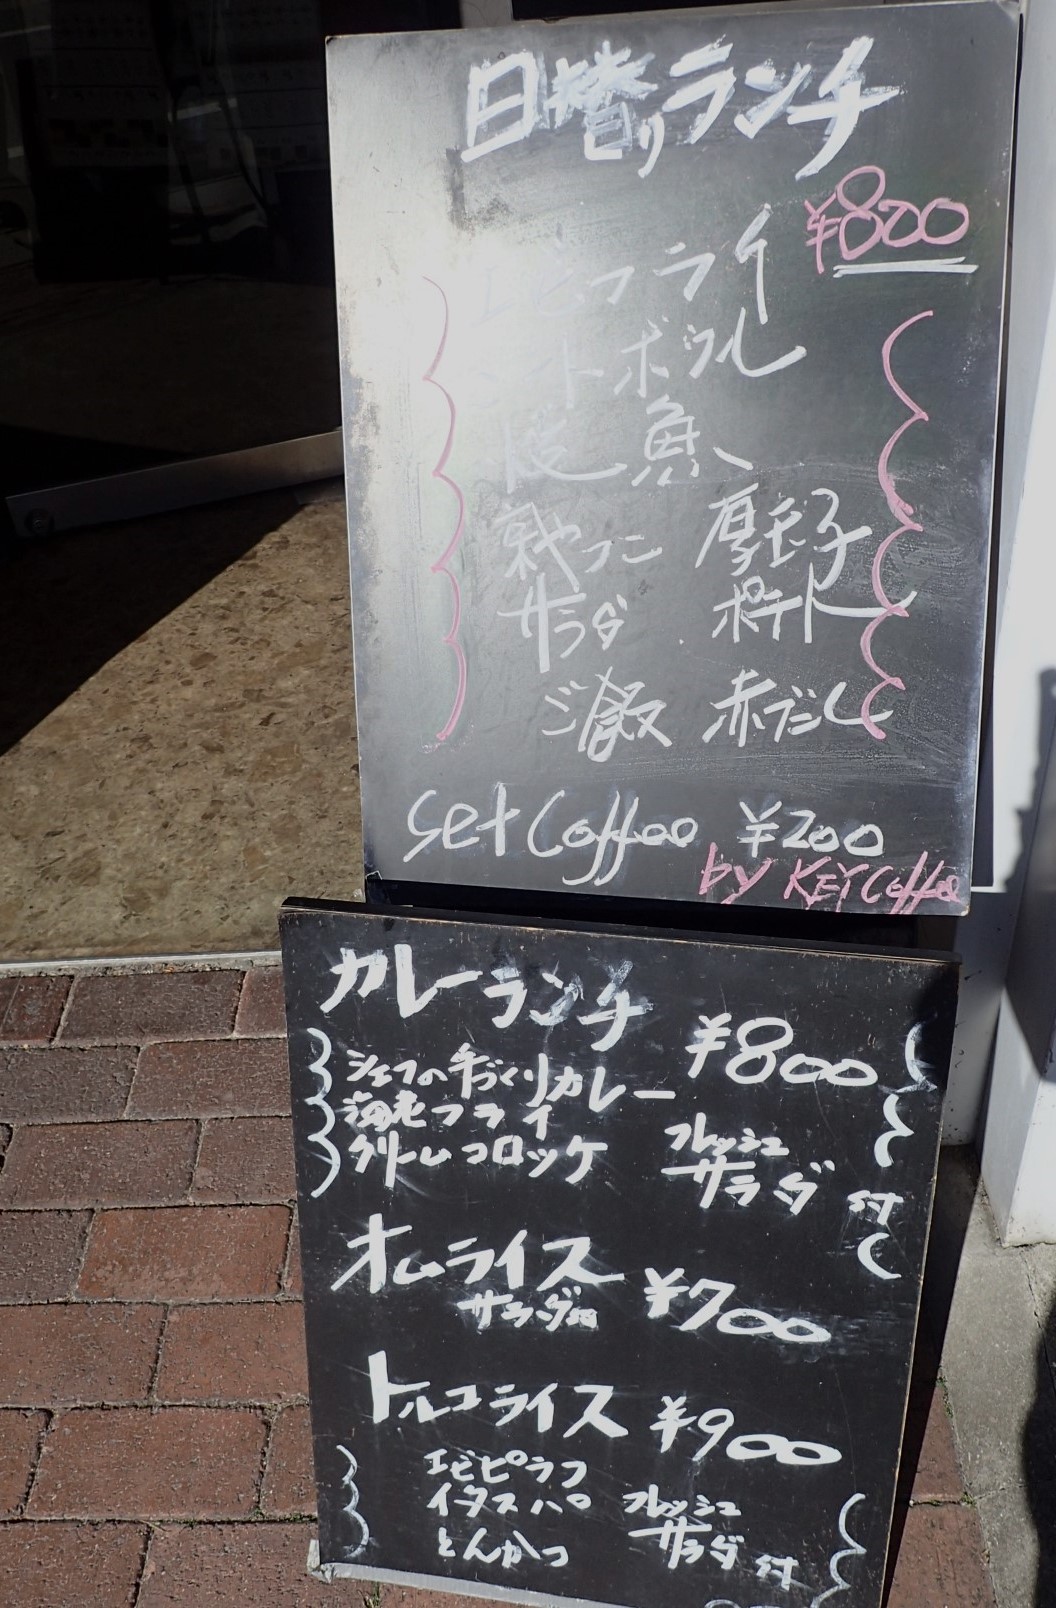 日替りランチ
¥800
エビフライ
ミートボール
焼魚
厚玉子
サラダ ポテト
ご飯 赤だし
Set Coffee ¥200
by KEY Coffee
カレーランチ ¥800
シェフの手づくりカレー
海老フライ
クリームコロッケ フレッシュサラダ 付
オムライス ¥700
サラダ付
トルコライス ¥900
エビピラフ
イタスパ フレッシュ
とんかつ サラダ 付